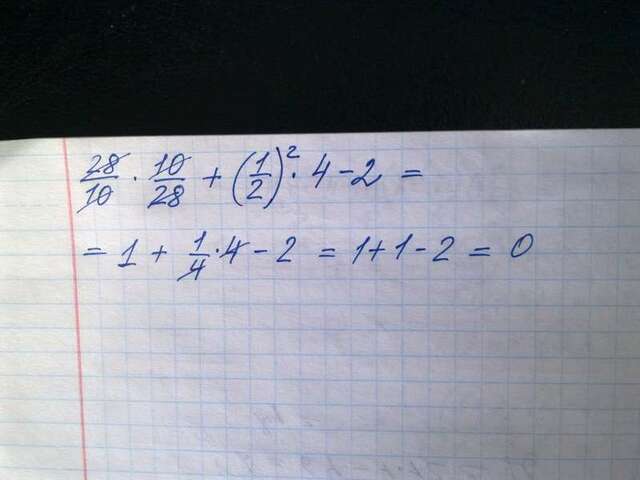 28/10 · 10/28 + (1/2)² · 4 - 2 =
= 1 + 1/4 · 4 - 2 = 1 + 1 - 2 = 0